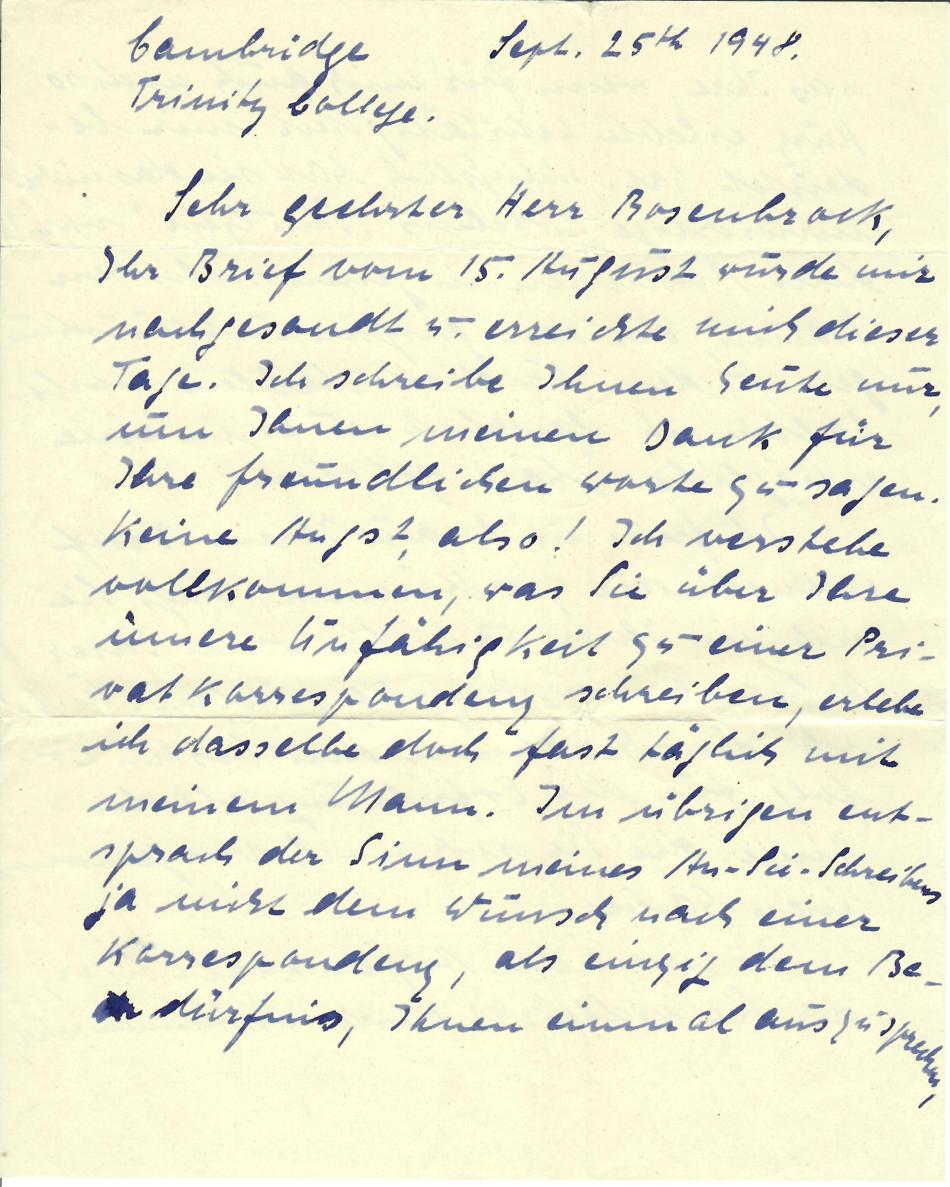 Cambridge Sept. 25th 1948.
Trinity College.
Sehr geehrter Herr Rosenbrock,
Ihr Brief vom 15. August wurde mir
nachgesandt u. erreichte mich dieser
Tage. Ich schreibe Ihnen heute nur,
um Ihnen meinen Dank für
Ihre freundlichen Worte zu sagen.
Keine Angst, also! Ich verstehe
vollkommen, was Sie über Ihre
innere Unfähigkeit zu einer Pri-
vatkorrespondenz schreiben, erlebe
ich dasselbe doch fast täglich mit
meinem Mann. Im übrigen ent-
sprach der Sinn meines An-Sie-Schreibens
ja nicht dem Wunsch nach einer
Korrespondenz, als einzig dem Be-
dürfnis, Ihnen einmal auszusprechen,